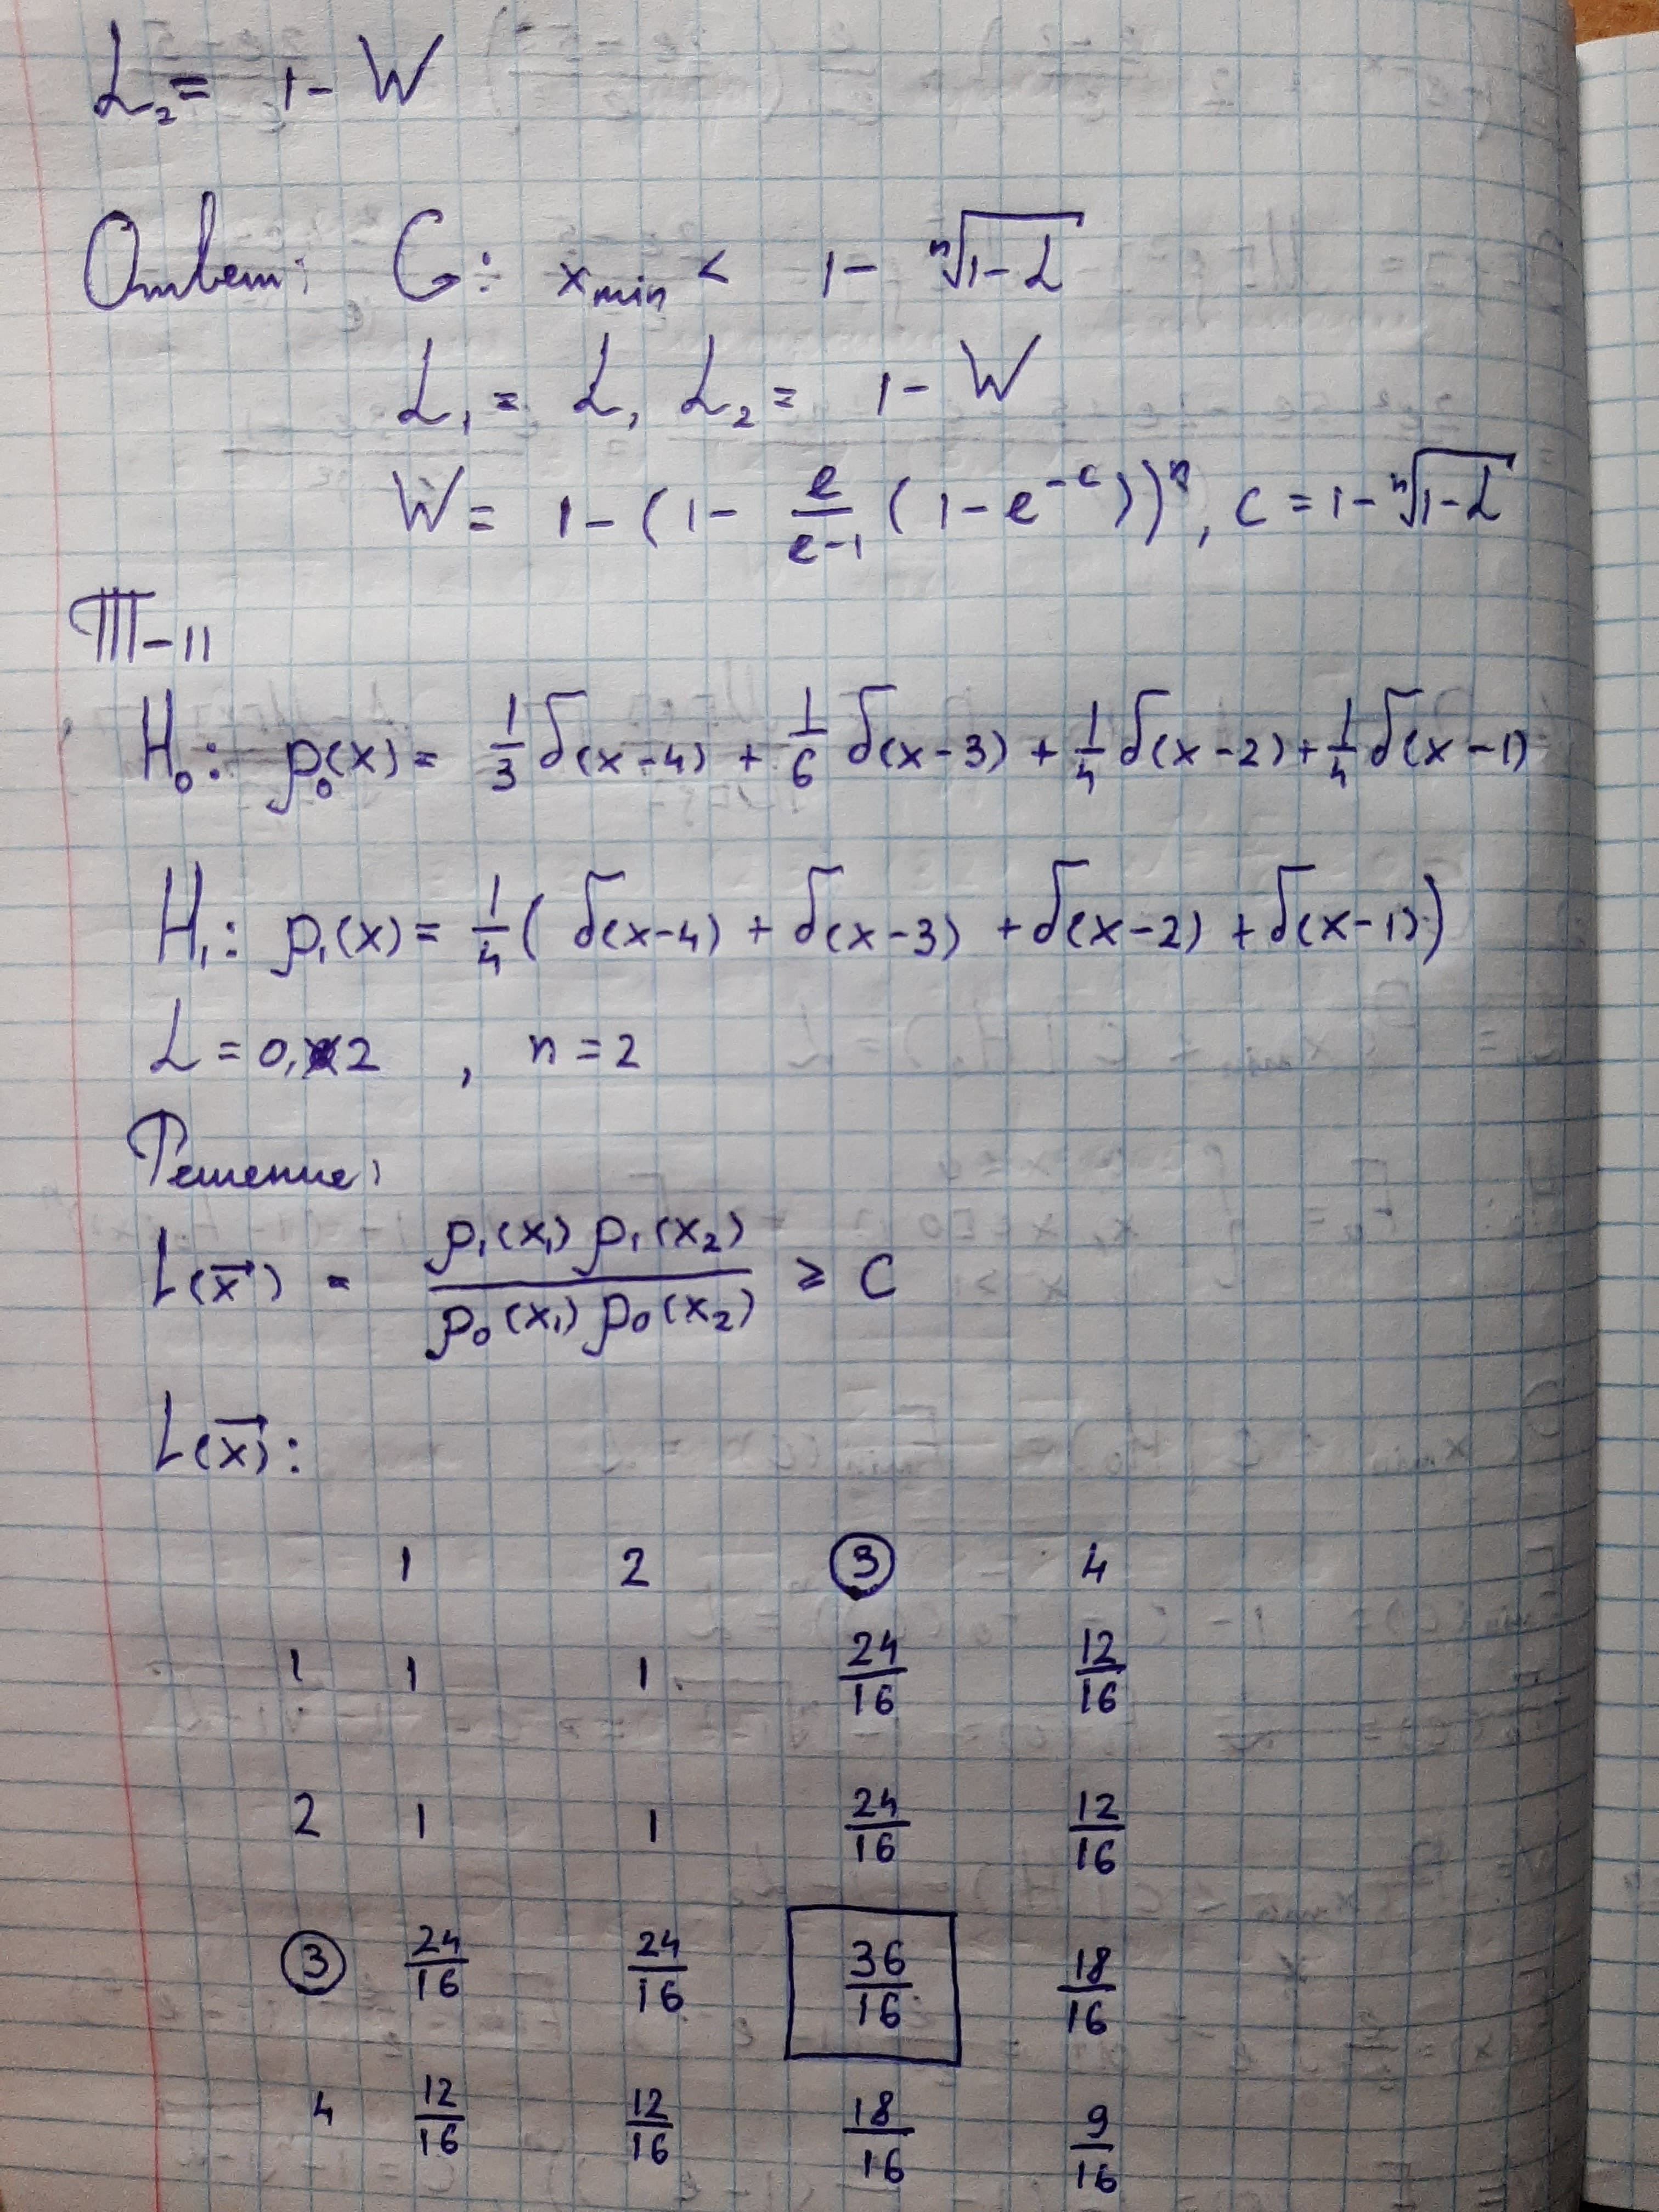 α₂ = 1 - W
Ответ: G: x_min < 1 - ⁿ√(1-α)
α₁ = α, α₂ = 1 - W
W = 1 - (1 - e/(e-1) (1 - e^(-c)))ⁿ, c = 1 - ⁿ√(1-α)
T-11
H₀: p₀(x) = 1/3 δ(x-4) + 1/6 δ(x-3) + 1/4 δ(x-2) + 1/4 δ(x-1)
H₁: p₁(x) = 1/4 ( δ(x-4) + δ(x-3) + δ(x-2) + δ(x-1) )
α = 0,2 , n = 2
Решение:
L(x⃗) = p₁(x₁) p₁(x₂) / p₀(x₁) p₀(x₂) ≥ C
L(x⃗):
1 2 3 4
1 1 1 24/16 12/16
2 1 1 24/16 12/16
3 24/16 24/16 36/16 18/16
4 12/16 12/16 18/16 9/16